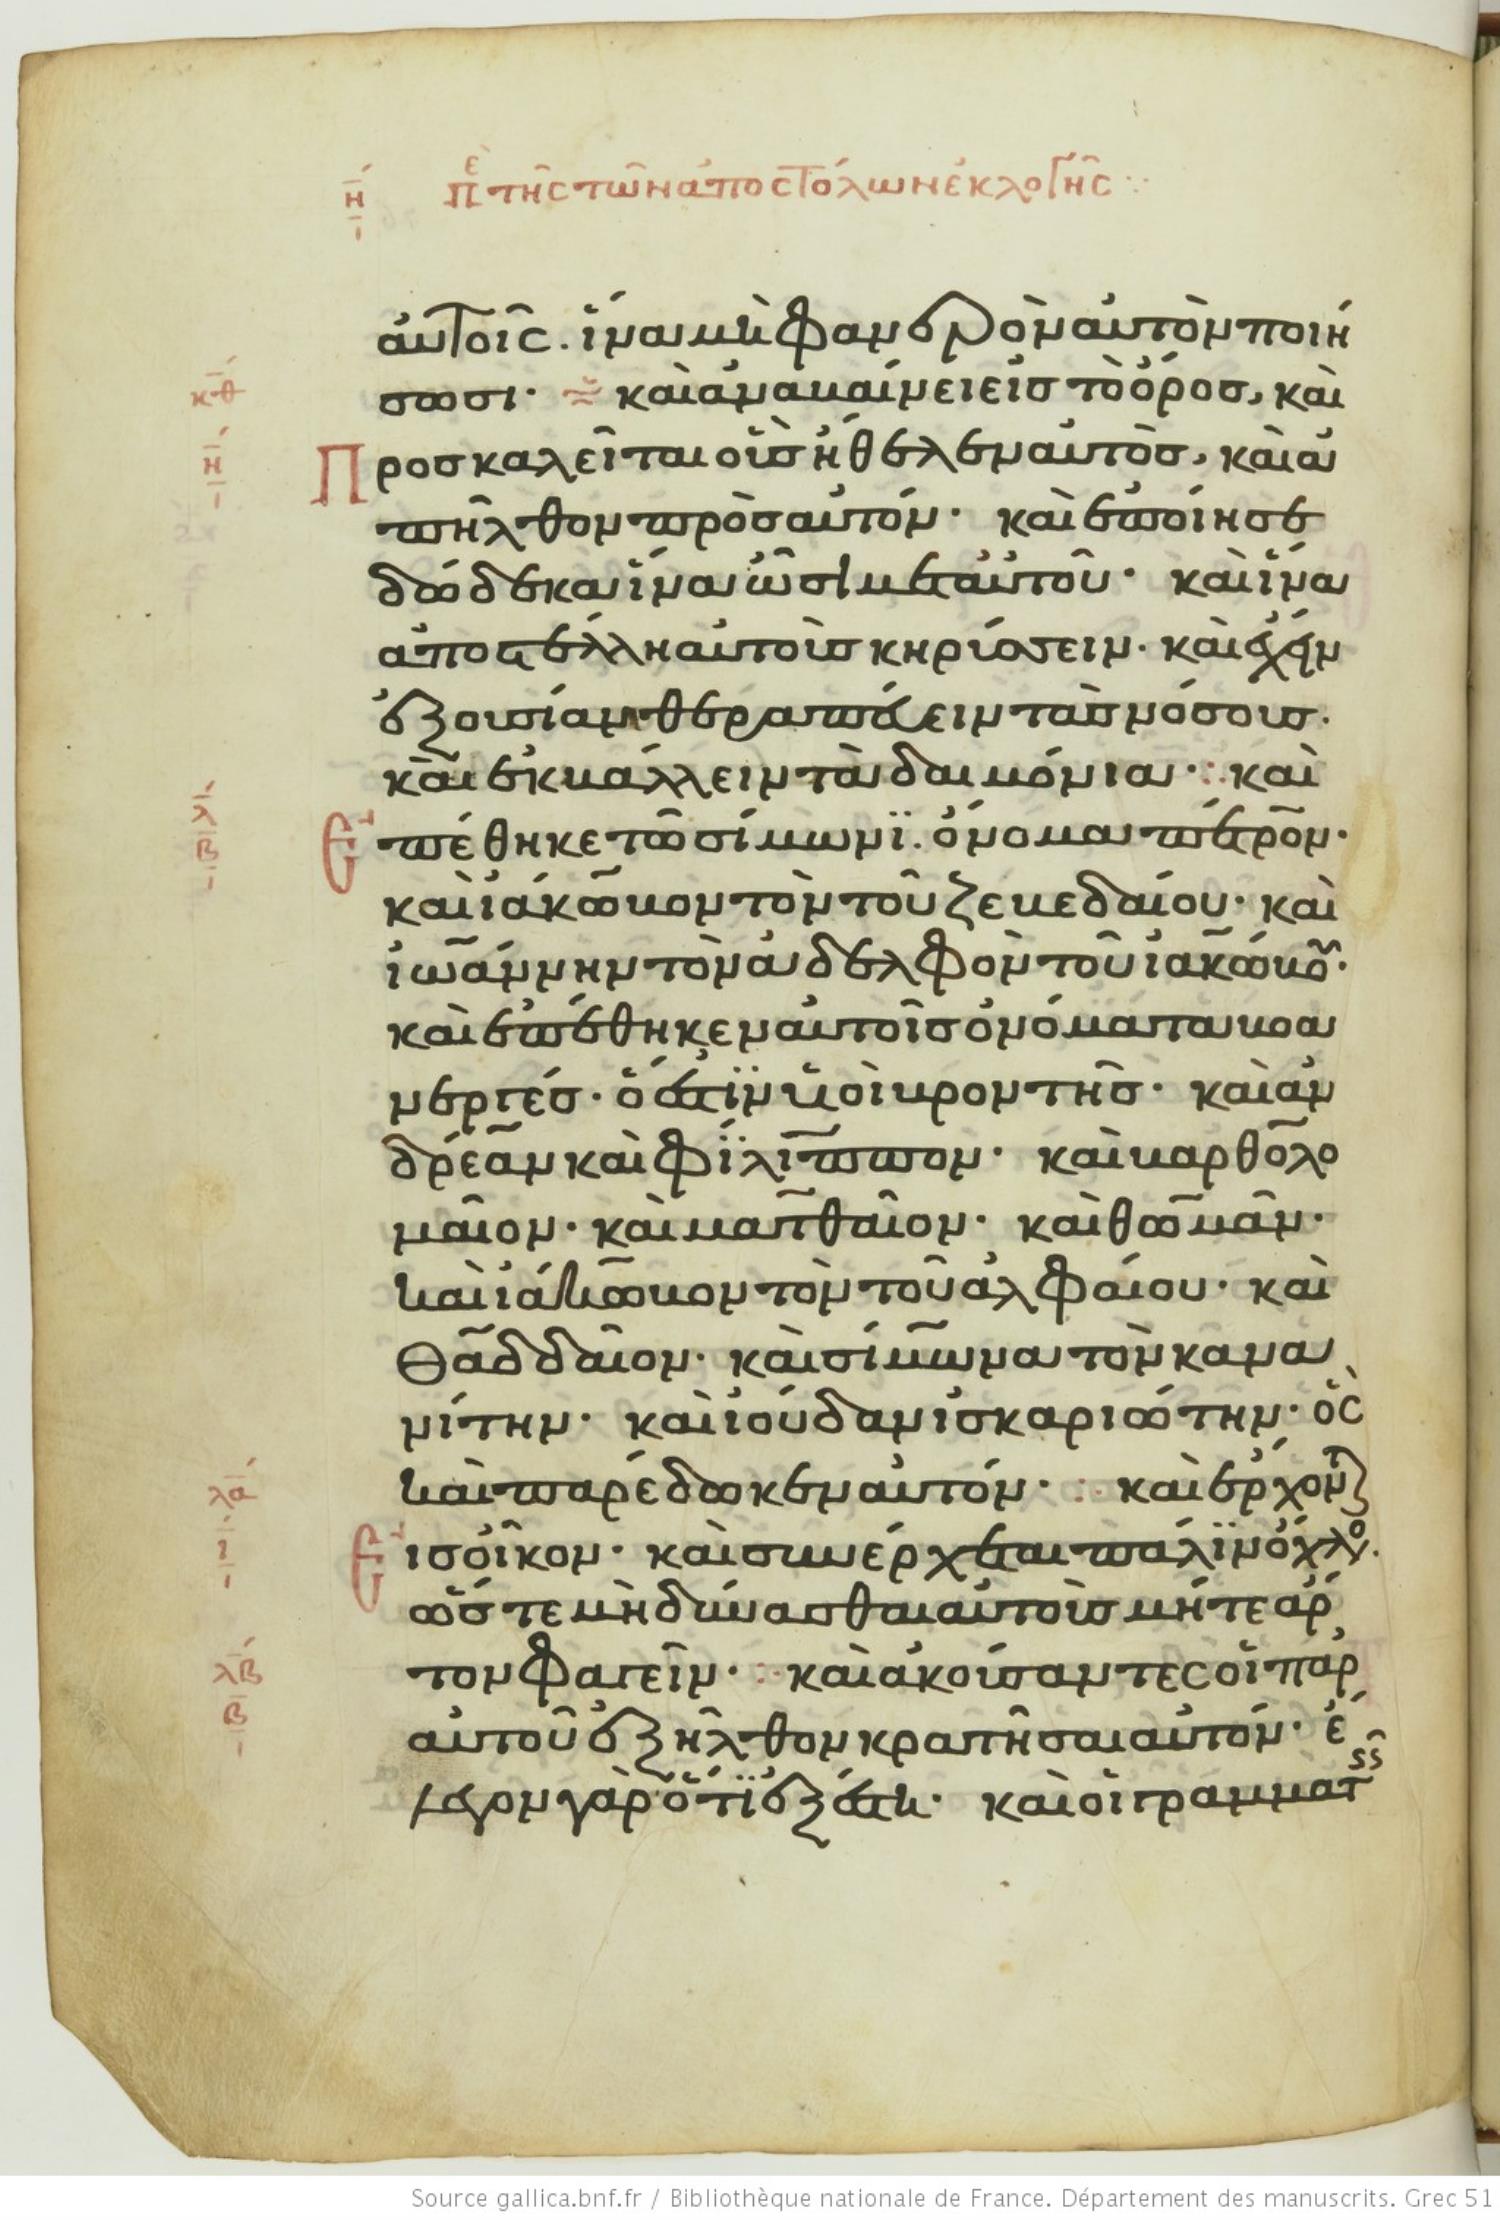 η Πε τῆς τῶν ἀποστόλων ἐκλογῆς
αὐτοῖς. ἵνα μὴ φανερὸν αὐτὸν ποιή
σωσι· καὶ ἀναβαίνει εἰς τὸ ὄρος, καὶ
κθ
η
Προσκαλεῖται οὓς ἤθελεν αὐτὸς, καὶ ἀ
πῆλθον πρὸς αὐτόν· καὶ ἐποίησε
δώδεκα ἵνα ὦσι μετ αὐτοῦ· καὶ ἵνα
αποστέλλη αὐτοὺς κηρύσσειν· καὶ ἔχειν
ἐξουσίαν θεραπεύειν τὰς νόσους.
καὶ ἐκβάλλειν τὰ δαιμόνια· καὶ
λ
β
Επέθηκε τῶ σίμωνϊ. ὄνομα πέτρον·
καὶ ἰάκωβον τὸν τοῦ ζεβεδαίου· καὶ
ἰωάννην τὸν ἀδελφὸν τοῦ ἰακώβου·
καὶ ἐπέθηκεν αὐτοῖς ὀνόματα βοα
νεργές· ὅ ἐστϊν υἱοὶ βροντῆς· καὶ ἀν
δρέαν καὶ φίλιππον· καὶ βαρθολο
μαῖον· καὶ ματθαῖον· καὶ θωμᾶν·
καὶ ἰάκωβον τὸν τοῦ ἀλφαίου· καὶ
θαδδαῖον· καὶ σίμωνα τὸν κανα
νίτην· καὶ ἰούδαν ἰσκαριώτην· ὃς
καὶ παρέδωκεν αὐτόν· καὶ ἔρχοντ
λα
ι
Εἰς οἶκον· καὶ συνέρχεται παλϊν ὄχλος.
ὥστε μὴ δύνασθαι αὐτοὺς μήτε ἄρ
λβ
β
τον φαγεῖν· καὶ ἀκούσαντες οἱ παρ
αὐτοῦ ἐξῆλθον κρατῆσαι αὐτόν· ἔ
λεγον γὰρ ὅτϊ ἐξέστη· καὶ οἱ γραμματ
Source gallica.bnf.fr / Bibliothèque nationale de France. Département des manuscrits. Grec 51